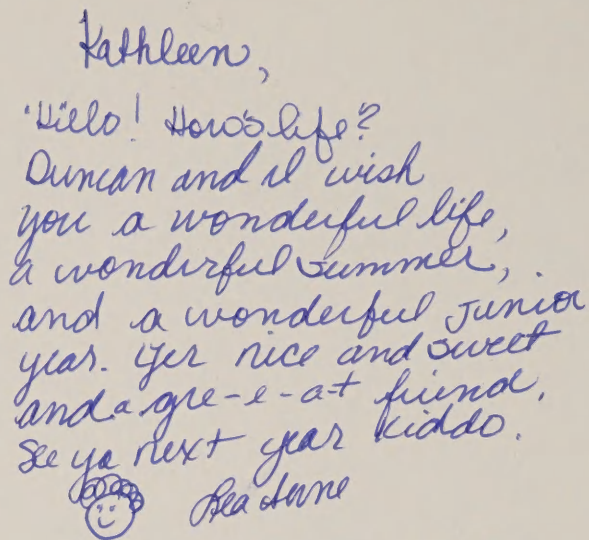 Kathleen,
Hello! How's life?
Duncan and I wish
you a wonderful life,
a wonderful summer,
and a wonderful junior
year. Yer nice and sweet
and a gre-e-a-t friend.
See ya next year kiddo.
Lea Anne